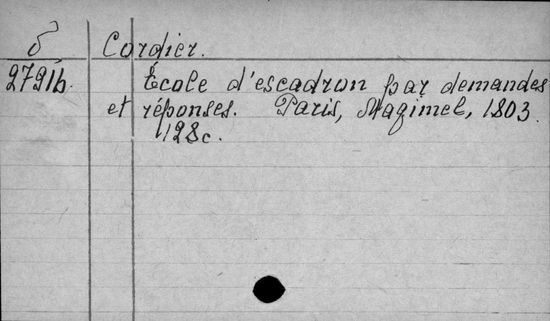 δ Cordier.
2721b. École d'escadron par demandes
et réponses. Paris, Magimel, 1803.
128c.